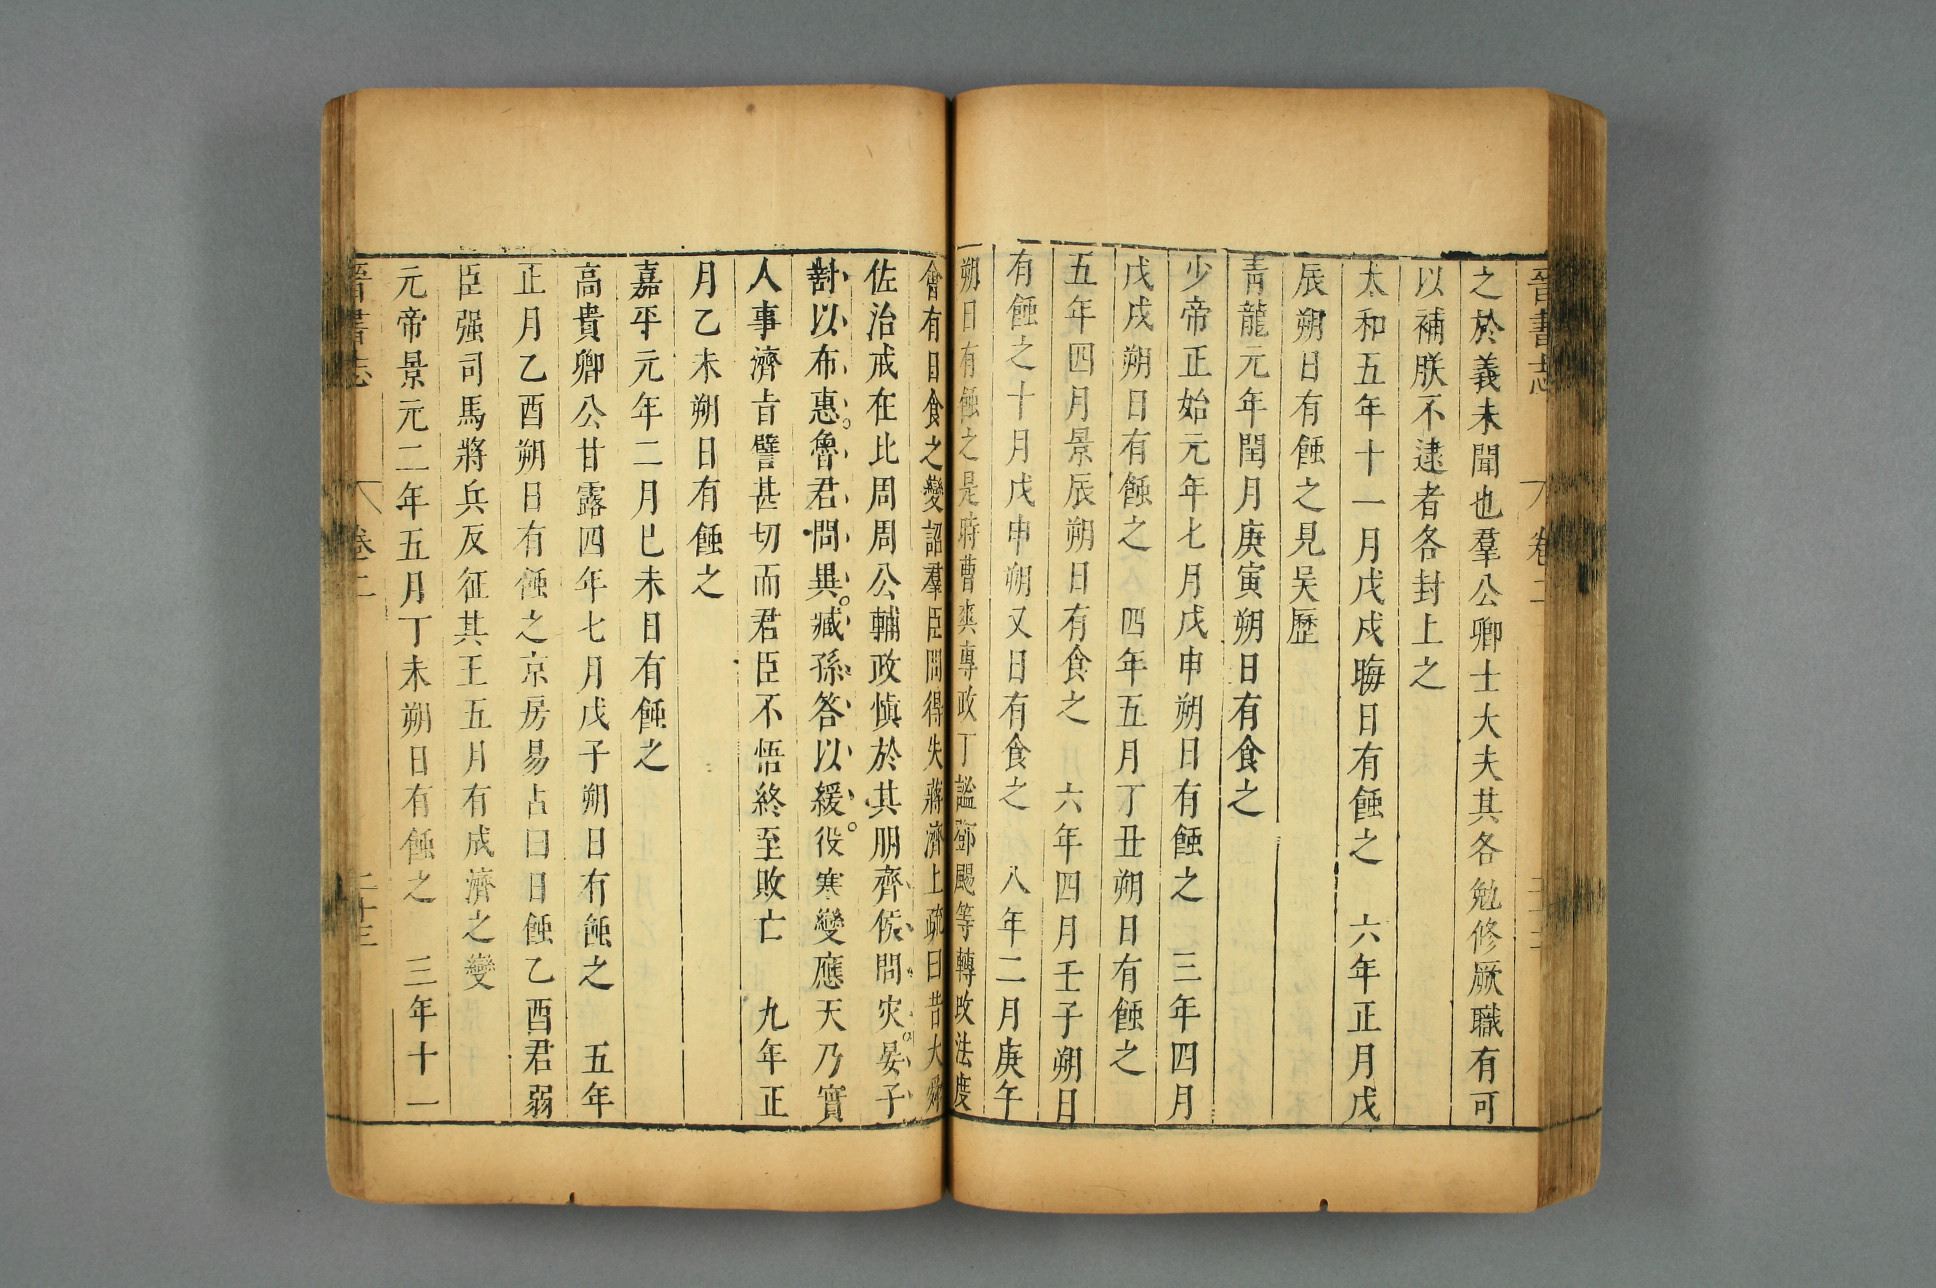 晉書志 卷二
之於義未聞也羣公卿士大夫其各勉修厥職有可
以補朕不逮者各封上之
太和五年十一月戊戌晦日有蝕之 六年正月戊
辰朔日有蝕之見吳歷
青龍元年閏月庚寅朔日有食之
少帝正始元年七月戊申朔日有蝕之 三年四月
戊戌朔日有蝕之 四年五月丁丑朔日有蝕之
五年四月景辰朔日有食之 六年四月壬子朔日
有蝕之十月戊申朔又日有食之 八年二月庚午
朔日有蝕之是時曹爽專政丁謐鄧颺等轉改法度
會有日食之變詔羣臣問得失蔣濟上疏曰昔大舜
佐治戒在比周周公輔政慎於其朋齊侯問災晏子
對以布惠魯君問異臧孫答以緩役塞變應天乃實
人事濟旨譬甚切而君臣不悟終至敗亡 九年正
月乙未朔日有蝕之
嘉平元年二月巳未日有蝕之
高貴卿公甘露四年七月戊子朔日有蝕之 五年
正月乙酉朔日有蝕之京房易占曰日蝕乙酉君弱
臣强司馬將兵反征其王五月有成濟之變
元帝景元二年五月丁未朔日有蝕之 三年十一
晉書志 卷二 二十三